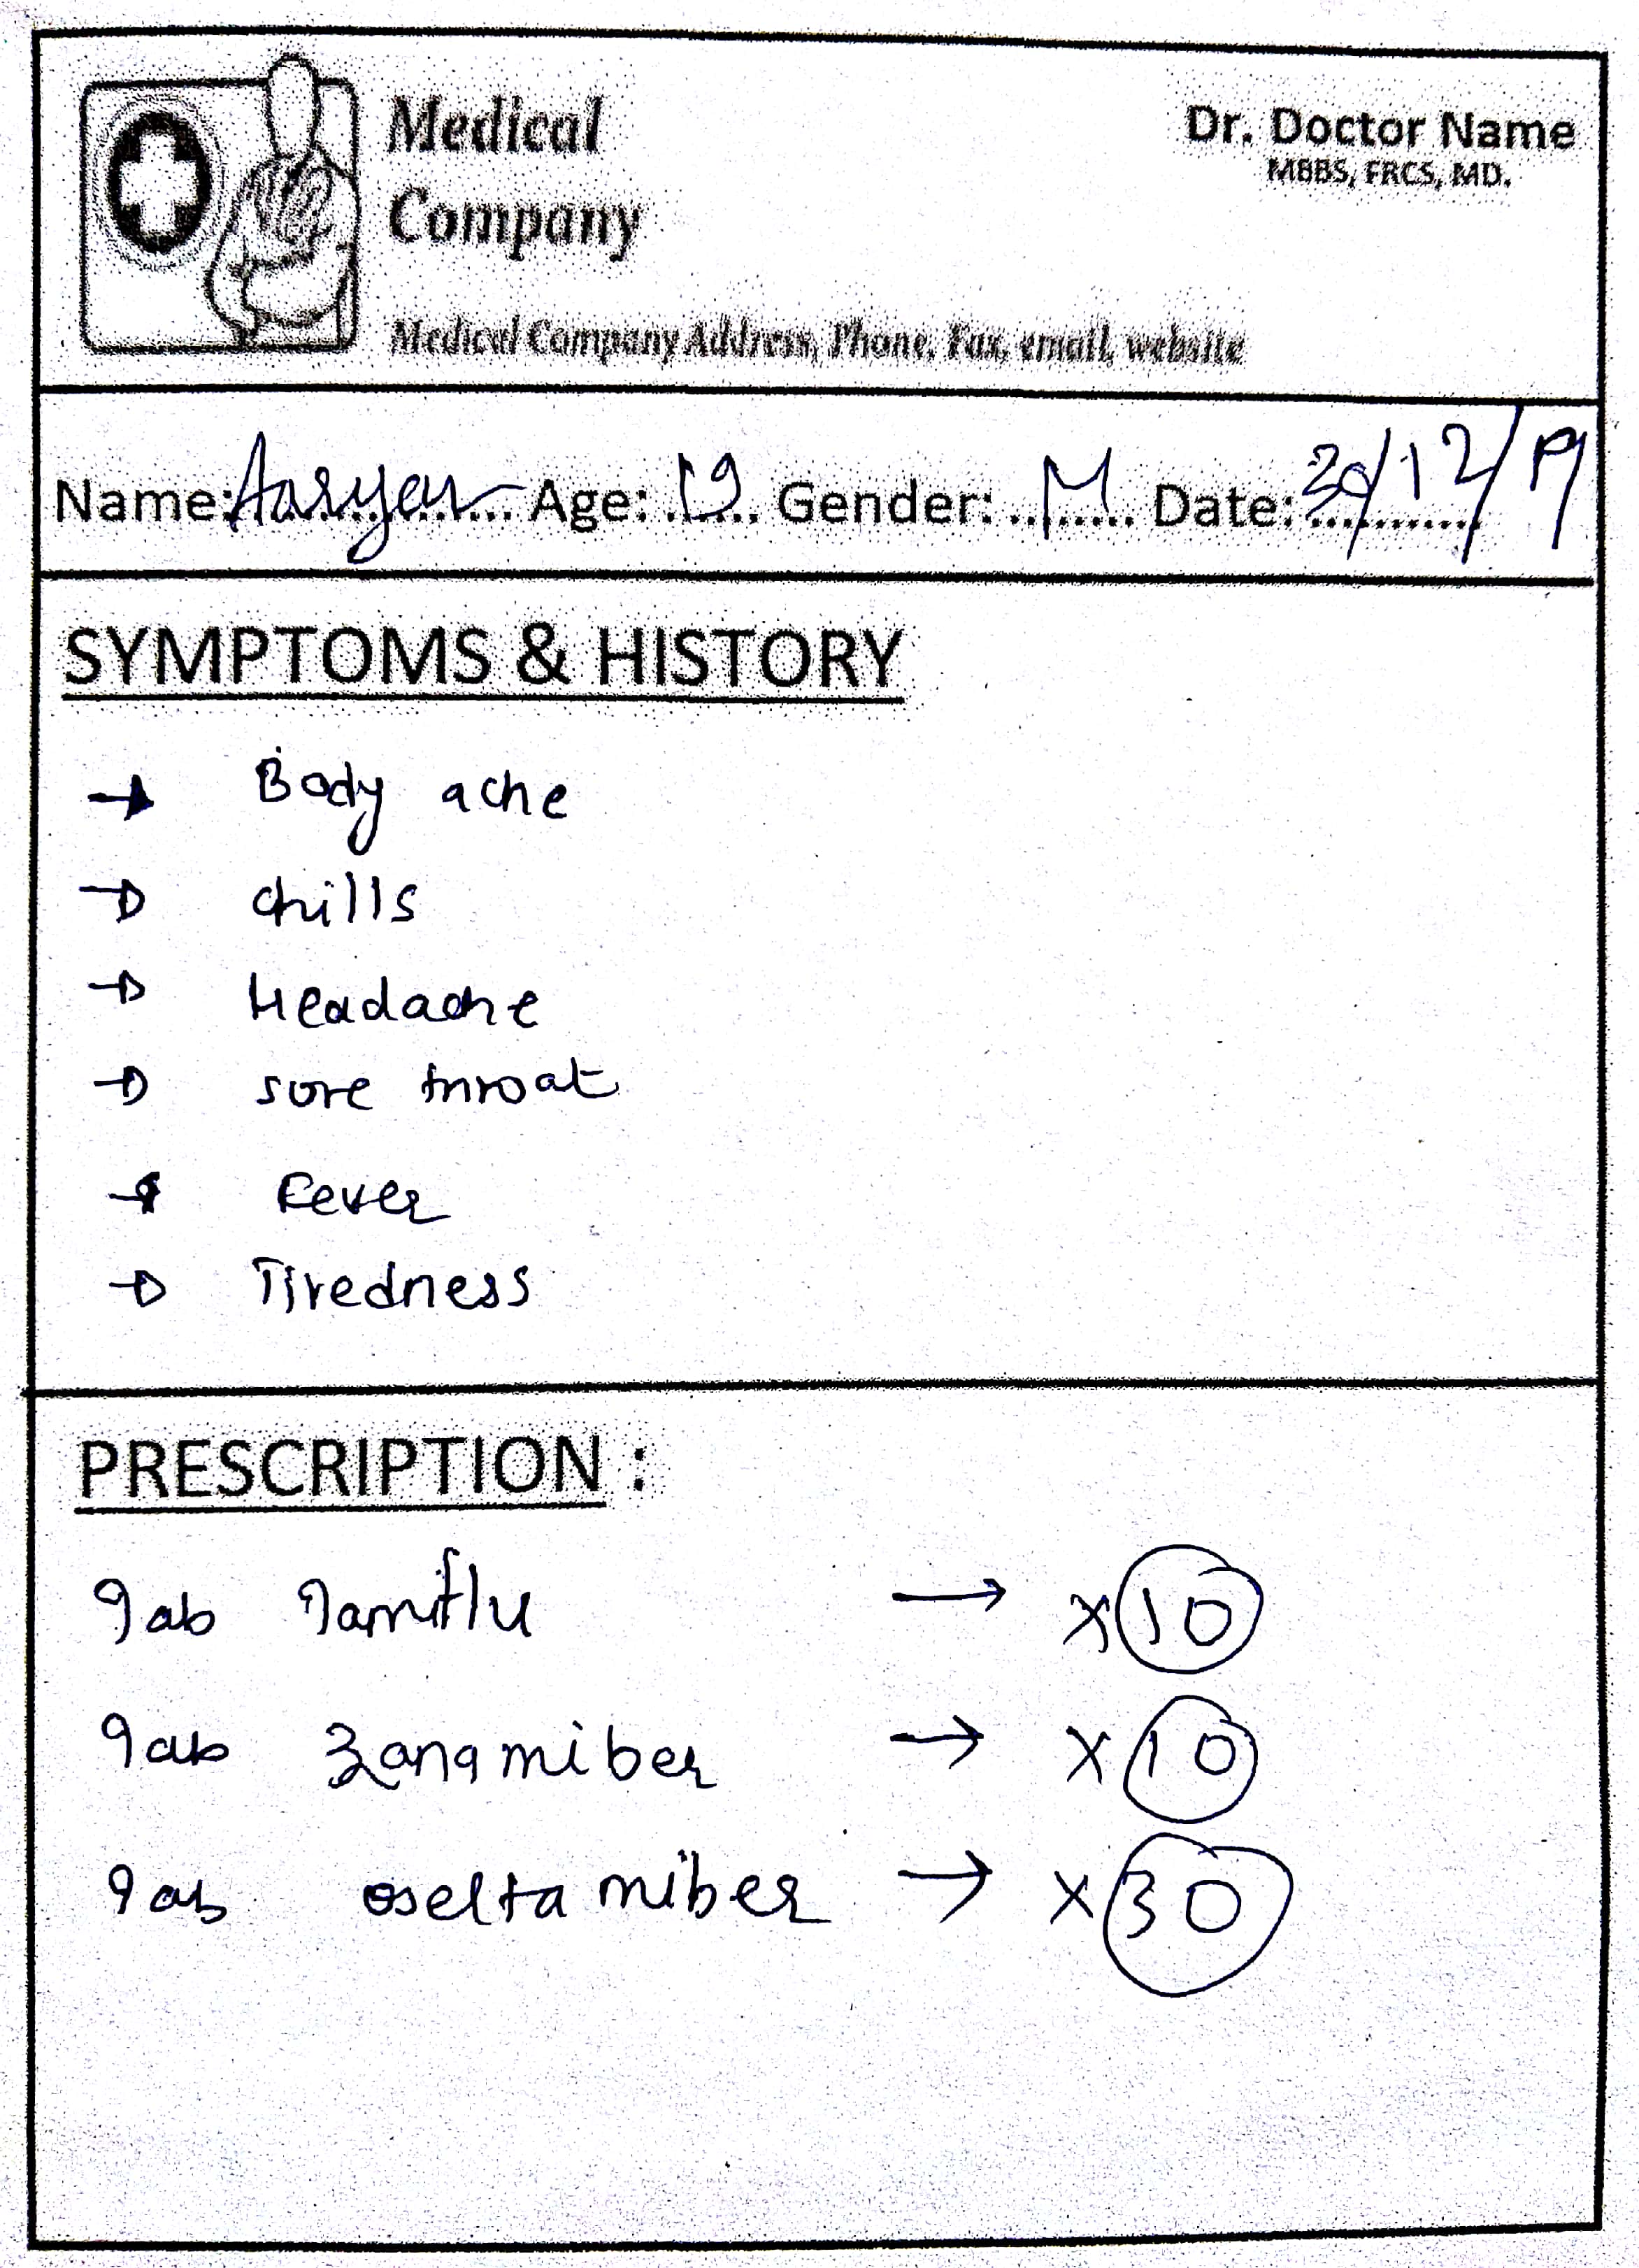 Medical
Company
Dr. Doctor Name
MBBS, FRCS, MD.
Medical Company Address, Phone, Fax, email, website
Name: Aaryan Age: 19 Gender: M Date: 30/12/19
SYMPTOMS & HISTORY
→ Body ache
→ chills
→ Headache
→ sore throat
→ Fever
→ Tiredness
PRESCRIPTION :
Tab Tamiflu → x 10
Tab Zanamiber → x 10
Tab oseltamiber → x 30